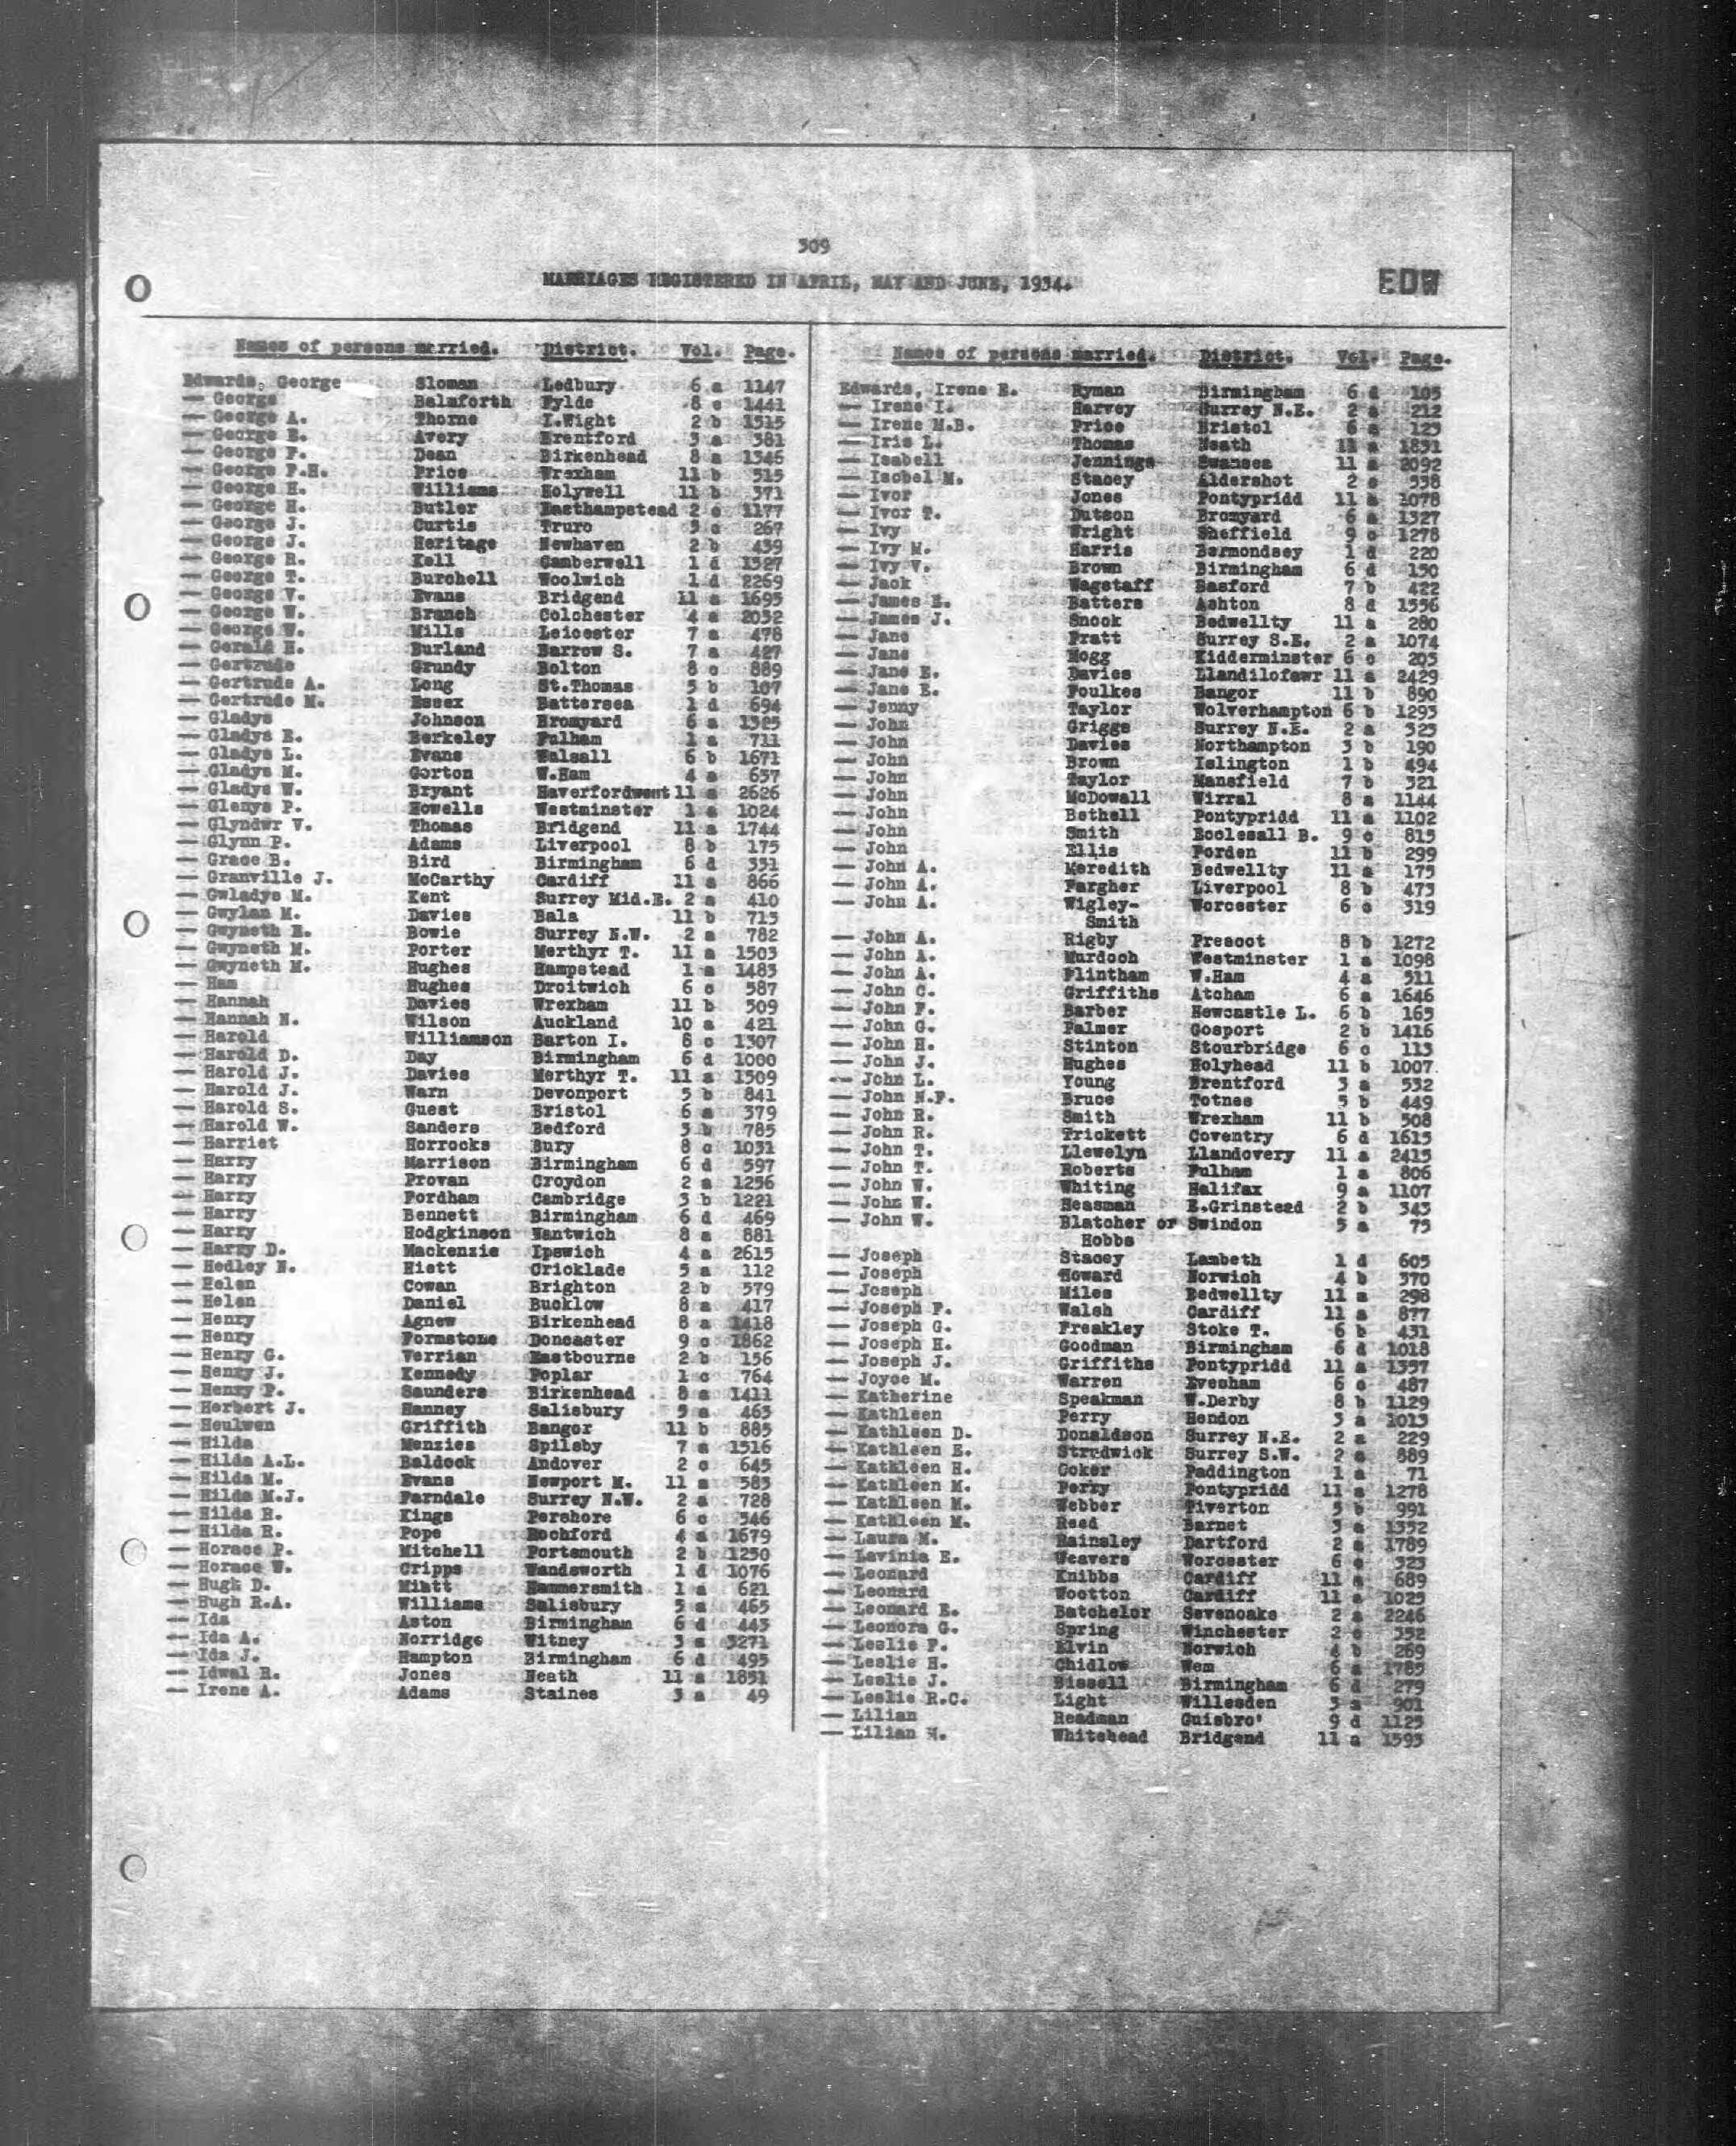 309
MARRIAGES REGISTERED IN APRIL, MAY AND JUNE, 1934.
EDW
Names of persons married. District. Vol. Page.
Edwards, George Sloman Ledbury 6 a 1147
— George Balmforth Fylde 8 e 1441
— George A. Thorne I.Wight 2 b 1515
— George E. Avery Brentford 3 a 381
— George F. Dean Birkenhead 8 a 1346
— George F.H. Price Wrexham 11 b 515
— George H. Williams Holywell 11 b 371
— George H. Butler Easthampstead 2 c 1177
— George J. Curtis Truro 5 c 267
— George J. Heritage Newhaven 2 b 439
— George R. Kell Camberwell 1 d 1527
— George T. Burchell Woolwich 1 d 2269
— George V. Evans Bridgend 11 a 1695
— George W. Branch Colchester 4 a 2032
— George W. Mills Leicester 7 a 478
— Gerald H. Burland Barrow S. 7 a 427
— Gertrude Grundy Bolton 8 c 889
— Gertrude A. Long St.Thomas 5 b 107
— Gertrude M. Essex Battersea 1 d 694
— Gladys Johnson Bromyard 6 a 1325
— Gladys E. Berkeley Fulham 1 a 711
— Gladys L. Evans Walsall 6 b 1671
— Gladys M. Gorton W.Ham 4 a 657
— Gladys W. Bryant Haverfordwest 11 a 2626
— Glenys P. Howells Westminster 1 a 1024
— Glyndwr V. Thomas Bridgend 11 a 1744
— Glynn P. Adams Liverpool 8 b 175
— Grace B. Bird Birmingham 6 d 331
— Granville J. McCarthy Cardiff 11 a 866
— Gwladys M. Kent Surrey Mid.E. 2 a 410
— Gwylan M. Davies Bala 11 b 715
— Gwyneth E. Bowie Surrey N.W. 2 a 782
— Gwyneth M. Porter Merthyr T. 11 a 1503
— Gwyneth M. Hughes Hampstead 1 a 1483
— Ham Hughes Droitwich 6 c 587
— Hannah Davies Wrexham 11 b 509
— Hannah N. Wilson Auckland 10 a 421
— Harold Williamson Barton I. 8 c 1307
— Harold D. Day Birmingham 6 d 1000
— Harold J. Davies Merthyr T. 11 a 1509
— Harold J. Warn Devonport 5 b 841
— Harold S. Guest Bristol 6 a 379
— Harold W. Sanders Bedford 3 b 785
— Harriet Horrocks Bury 8 c 1031
— Harry Marrison Birmingham 6 d 597
— Harry Provan Croydon 2 a 1256
— Harry Fordham Cambridge 3 b 1221
— Harry Bennett Birmingham 6 d 469
— Harry Hodgkinson Nantwich 8 a 881
— Harry D. Mackenzie Ipswich 4 a 2615
— Hedley N. Hiett Cricklade 5 a 112
— Helen Cowan Brighton 2 b 579
— Helen Daniel Bucklow 8 a 417
— Henry Agnew Birkenhead 8 a 1418
— Henry Formstone Doncaster 9 c 1862
— Henry G. Verrian Eastbourne 2 b 156
— Henry J. Kennedy Poplar 1 c 764
— Henry P. Saunders Birkenhead 8 a 1411
— Herbert J. Hanney Salisbury 5 a 463
— Heulwen Griffith Bangor 11 b 885
— Hilda Menzies Spilsby 7 a 1516
— Hilda A.L. Baldock Andover 2 c 645
— Hilda M. Evans Newport M. 11 a 583
— Hilda M.J. Farndale Surrey N.W. 2 a 728
— Hilda R. Kings Pershore 6 c 546
— Hilda R. Pope Rochford 4 a 1679
— Horace P. Mitchell Portsmouth 2 b 1250
— Horace W. Cripps Wandsworth 1 d 1076
— Hugh D. Miatt Hammersmith 1 a 621
— Hugh R.A. Williams Salisbury 5 a 465
— Ida Aston Birmingham 6 d 443
— Ida A. Norridge Witney 3 a 3271
— Ida J. Hampton Birmingham 6 d 495
— Idwal R. Jones Neath 11 a 1851
— Irene A. Adams Staines 3 a 49
Names of persons married. District. Vol. Page.
Edwards, Irene E. Ryman Birmingham 6 d 105
— Irene I. Harvey Surrey N.E. 2 a 212
— Irene M.B. Price Bristol 6 a 123
— Iris L. Thomas Neath 11 a 1831
— Isabell Jennings Swansea 11 a 2092
— Isobel M. Stacey Aldershot 2 c 538
— Ivor Jones Pontypridd 11 a 1078
— Ivor T. Dutson Bromyard 6 a 1327
— Ivy Wright Sheffield 9 c 1278
— Ivy M. Harris Bermondsey 1 d 220
— Ivy V. Brown Birmingham 6 d 150
— Jack Wagstaff Basford 7 b 422
— James E. Batters Ashton 8 d 1556
— James J. Snook Bedwellty 11 a 280
— Jane Pratt Surrey S.E. 2 a 1074
— Jane Hogg Kidderminster 6 c 205
— Jane E. Davies Llandilofawr 11 a 2429
— Jane E. Foulkes Bangor 11 b 890
— Jenny Taylor Wolverhampton 6 b 1293
— John Griggs Surrey N.E. 2 a 323
— John Davies Northampton 3 b 190
— John Brown Islington 1 b 494
— John Taylor Mansfield 7 b 321
— John McDowall Wirral 8 a 1144
— John Bethell Pontypridd 11 a 1102
— John Smith Ecclesall B. 9 c 815
— John Ellis Forden 11 b 299
— John A. Meredith Bedwellty 11 a 175
— John A. Fargher Liverpool 8 b 473
— John A. Wigley- Worcester 6 c 319
Smith
— John A. Rigby Prescot 8 b 1272
— John A. Murdoch Westminster 1 a 1098
— John A. Flintham W.Ham 4 a 511
— John C. Griffiths Atcham 6 a 1646
— John F. Barber Newcastle L. 6 b 165
— John G. Palmer Gosport 2 b 1416
— John H. Stinton Stourbridge 6 c 113
— John J. Hughes Holyhead 11 b 1007
— John L. Young Brentford 3 a 532
— John N.F. Bruce Totnes 5 b 449
— John R. Smith Wrexham 11 b 508
— John R. Trickett Coventry 6 d 1615
— John T. Llewelyn Llandovery 11 a 2415
— John T. Roberts Fulham 1 a 806
— John W. Whiting Halifax 9 a 1107
— John W. Heasman E.Grinstead 2 b 343
— John W. Blatcher or Swindon 5 a 75
Hobbs
— Joseph Stacey Lambeth 1 d 605
— Joseph Howard Norwich 4 b 370
— Joseph Miles Bedwellty 11 a 298
— Joseph F. Walsh Cardiff 11 a 877
— Joseph G. Freakley Stoke T. 6 b 431
— Joseph H. Goodman Birmingham 6 d 1018
— Joseph J. Griffiths Pontypridd 11 a 1357
— Joyce M. Warren Evesham 6 c 487
— Katherine Speakman W.Derby 8 b 1129
— Kathleen Perry Hendon 3 a 1013
— Kathleen D. Donaldson Surrey N.E. 2 a 229
— Kathleen E. Strudwick Surrey S.W. 2 a 889
— Kathleen H. Coker Paddington 1 a 71
— Kathleen M. Perry Pontypridd 11 a 1278
— Kathleen M. Webber Tiverton 5 b 991
— Kathleen M. Reed Barnet 3 a 1352
— Laura M. Rainsley Dartford 2 a 1789
— Lavinia E. Weavers Worcester 6 c 323
— Leonard Knibbs Cardiff 11 a 689
— Leonard Wootton Cardiff 11 a 1025
— Leonard E. Batchelor Sevenoaks 2 a 2246
— Leonora G. Spring Winchester 2 c 352
— Leslie F. Elvin Norwich 4 b 269
— Leslie H. Chidlow Wem 6 a 1785
— Leslie J. Bissell Birmingham 6 d 279
— Leslie R.C. Light Willesden 3 a 901
— Lilian Readman Guisbro' 9 d 1125
— Lilian H. Whitehead Bridgend 11 a 1593